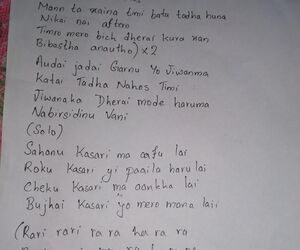 Mann ta xaina timi bata tadha huna
Nikai nai aftero
Timro mero bich dherai kura xan
Bibastha anautho) x 2
Audai jadai Garnu Yo Jiwanma
Katai Tadha Nahos Timi
Jiwanaka Dherai mode haruma
Nabirsidinu Vani
(Solo)
Sahanu Kasari ma aafu lai
Roku Kasari yi paaila haru lai
Cheku Kasari ma aankha lai
Bujhai Kasari yo mero mana lai
(Rari rari ra ra ha ra ra